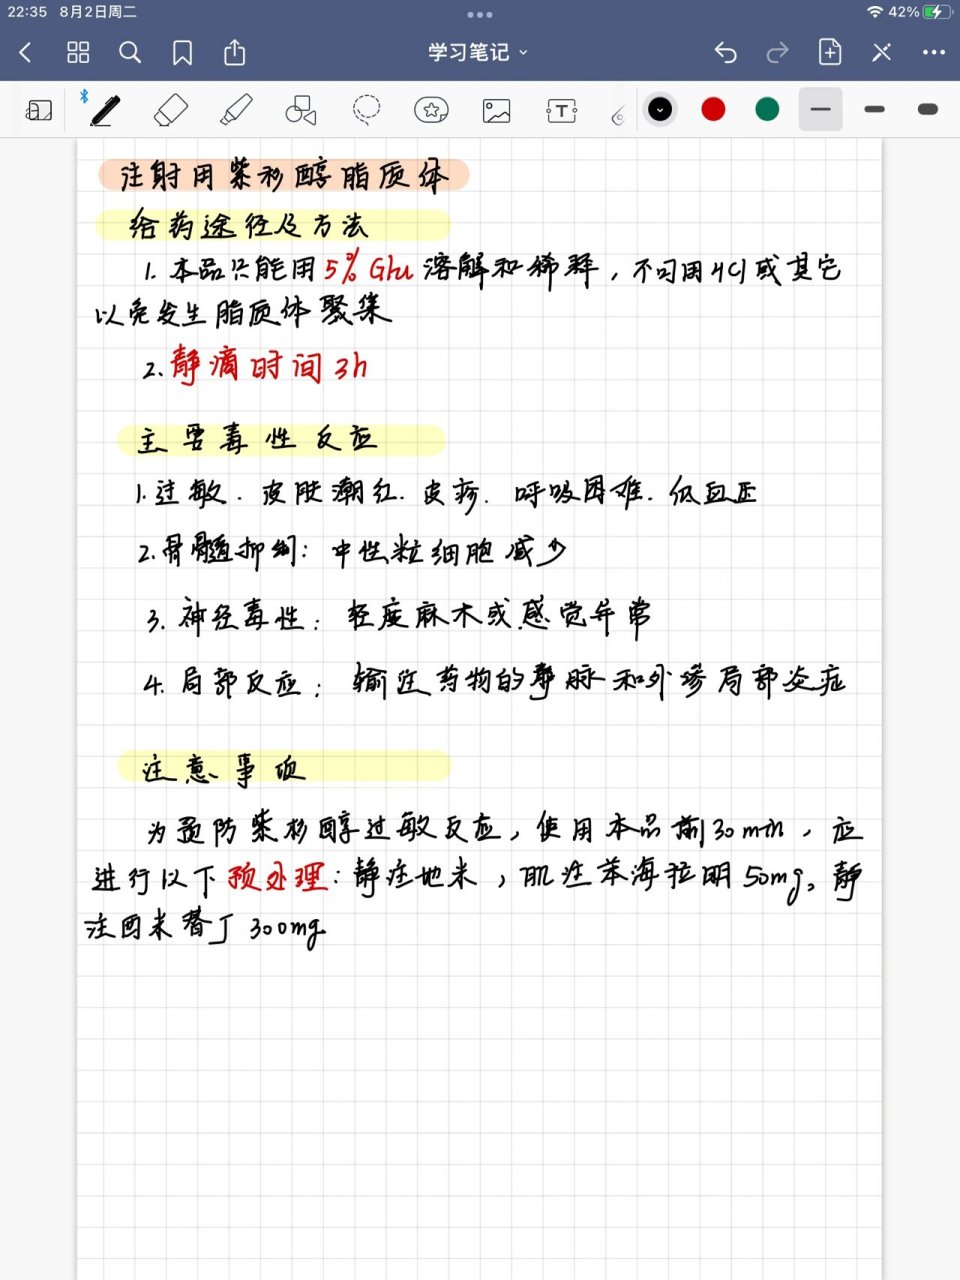 22:35 8月2日周二
42%
学习笔记
注射用紫杉醇脂质体
给药途径及方法
1. 本品只能用5% Glu溶解和稀释，不可用HCl或其它
以免发生脂质体聚集
2. 静滴时间3h
主要毒性反应
1. 过敏. 皮肤潮红. 皮疹. 呼吸困难. 低血压
2. 骨髓抑制: 中性粒细胞减少
3. 神经毒性: 轻度麻木或感觉异常
4. 局部反应: 输注药物的静脉和外渗局部炎症
注意事项
为预防紫杉醇过敏反应，使用本品前30min，应
进行以下预处理: 静注地米，肌注苯海拉明50mg。静
注西米替丁300mg